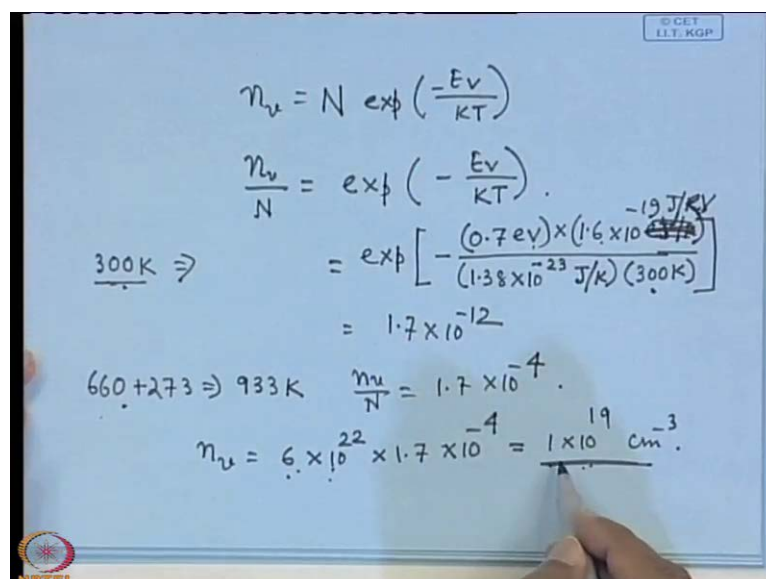 © CET
I.I.T. KGP
n_v = N exp (-Ev/KT)
n_v/N = exp (- Ev/KT).
300K ⇒ = exp [- (0.7 ev)×(1.6×10^-19 J/eV)/(1.38×10^-23 J/K)(300K)]
= 1.7×10^-12
660+273 ⇒ 933K n_v/N = 1.7×10^-4.
n_v = 6×10^22 × 1.7×10^-4 = 1×10^19 cm^-3.